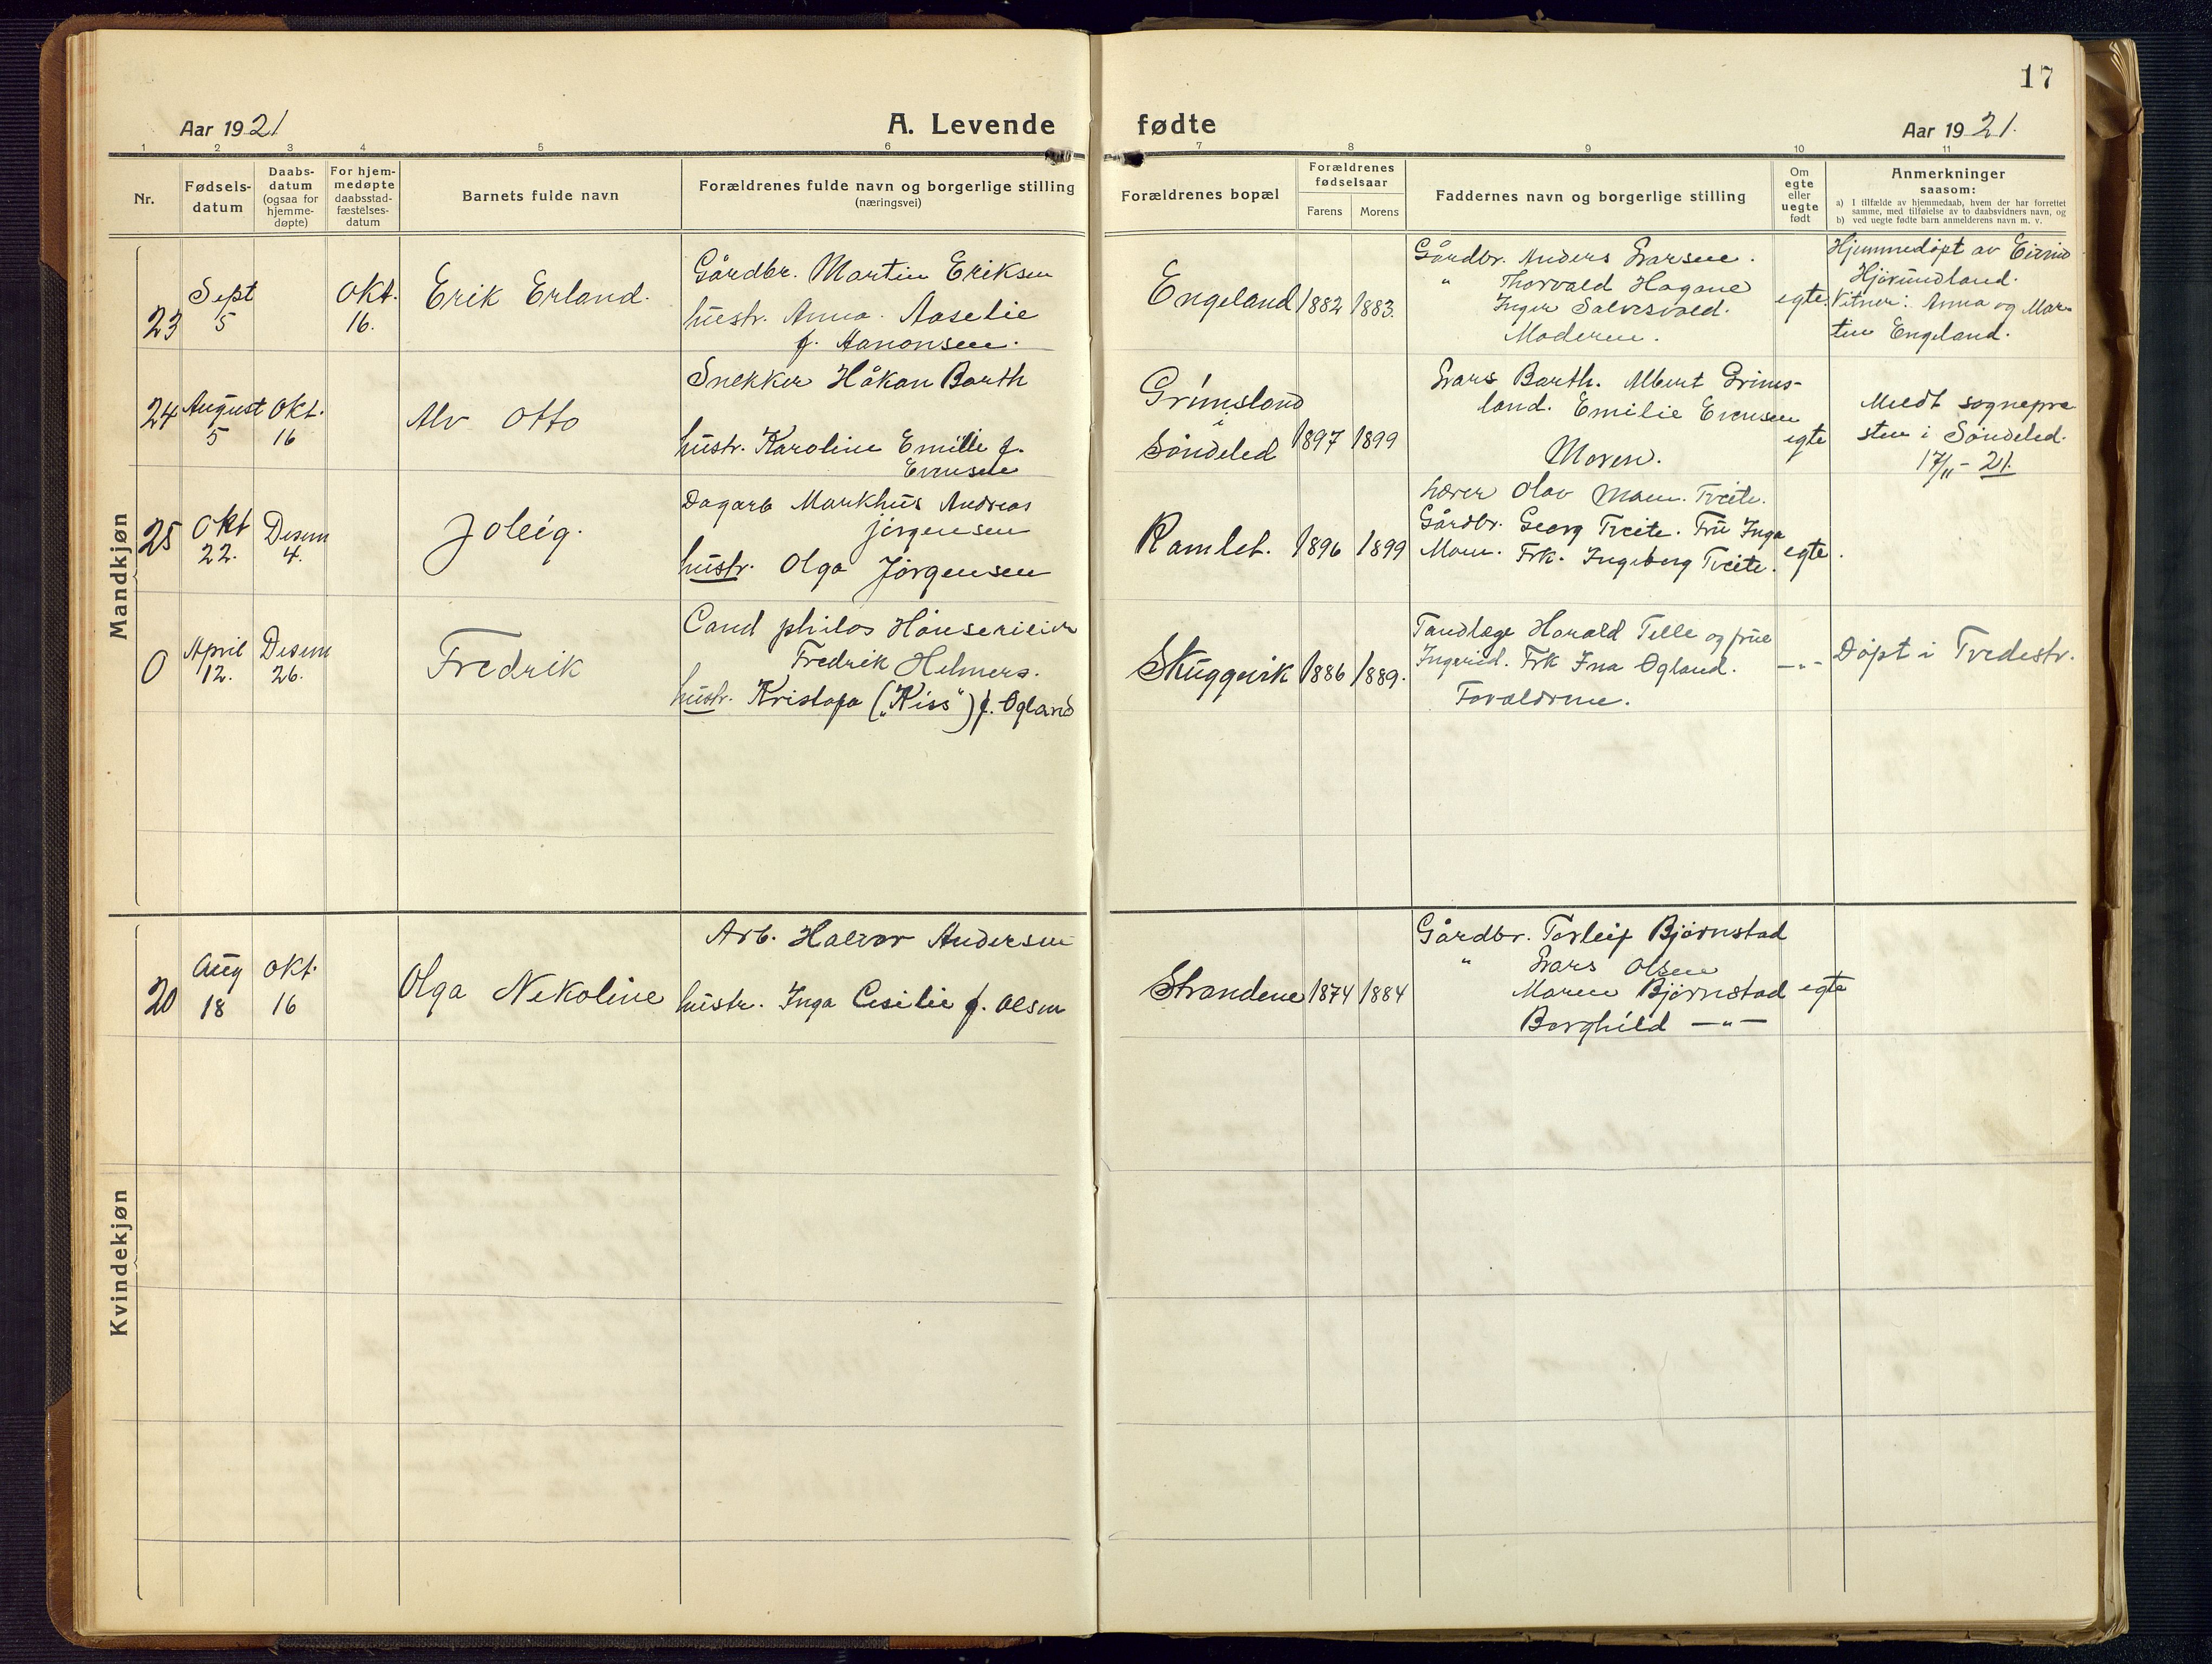 17
Aar 1921
A. Levende
fødte
Aar 1921.
1 2 3 4 5 6 7 8 9 10 11
Nr.
Fødsels-
datum
Daabs-
datum
(ogsaa for
hjemme-
døpte)
For hjem-
medøpte
daabsstad-
fæstelses-
datum
Barnets fulde navn
Forældrenes fulde navn og borgerlige stilling
(næringsvei)
Forældrenes bopæl
Forældrenes
fødselsaar
Farens
Morens
Faddernes navn og borgerlige stilling
Om
egte
eller
uegte
født
Anmerkninger
saasom:
a) I tilfælde av hjemmedaab, hvem der har forrettet
samme, med tilføielse av to daabsvidners navn, og
b) ved uegte fødte barn anmelderens navn m. v.
Mandkjøn
23
Sept
5
Okt.
16.
Erik Erland.
Gårdbr. Martin Eriksen
hustr. Anna Aaselie
f. Aanonsen.
Engeland
1882
1883.
Gårdbr. Anders Larsen.
" Thorvald Hagane
Inger Salvesvold.
Moderen.
egte.
Hjemmedöpt av
Hjövundland.
Vitner: Anna og Mar-
tin Engeland.
24
August
5
Okt.
16
Alv Otto
Snekker Håkan Barth
hustr. Karoline Emilie f.
Evensen
Grimsland
i
Söndeled
1897
1899
Lars Barth. Albert Grims-
land. Emilie Evensen
Moren.
egte
Meldt sognepre
sten i Söndeled.
17/11 - 21.
25
Okt
22.
Desem
4.
Joleig.
Dagarb Markhus Andreas
Jörgensen
hustr. Olga Jörgensen
Ramlet.
1896
1899
Lærer Olav Moen. Tveite.
Gårdbr. Georg Tveite. Fru Inga
Moen. Frk. Ingeborg Tveite.
egte.
0
April
12.
Desem
26.
Fredrik
Cand philos
Fredrik Helmers.
hustr. Kristofa ("Kiss") f. Ögland
Skuggevik
1886
1889.
Tandlæge Harald Telle og frue
Ingerid. Frk Ina Ögland.
Foreldrene.
-"-
Döpt i Tvedestr.
Kvindekjøn
20
Aug
18
Okt.
16
Olga Nekoline
Arb. Halvor Andersen
hustr. Inga Cesilie f. Olsen
Strandene
1874
1884
Gårdbr. Torleif Björnstad
" Lars Olsen
Maren Björnstad
Borghild -"-
egte